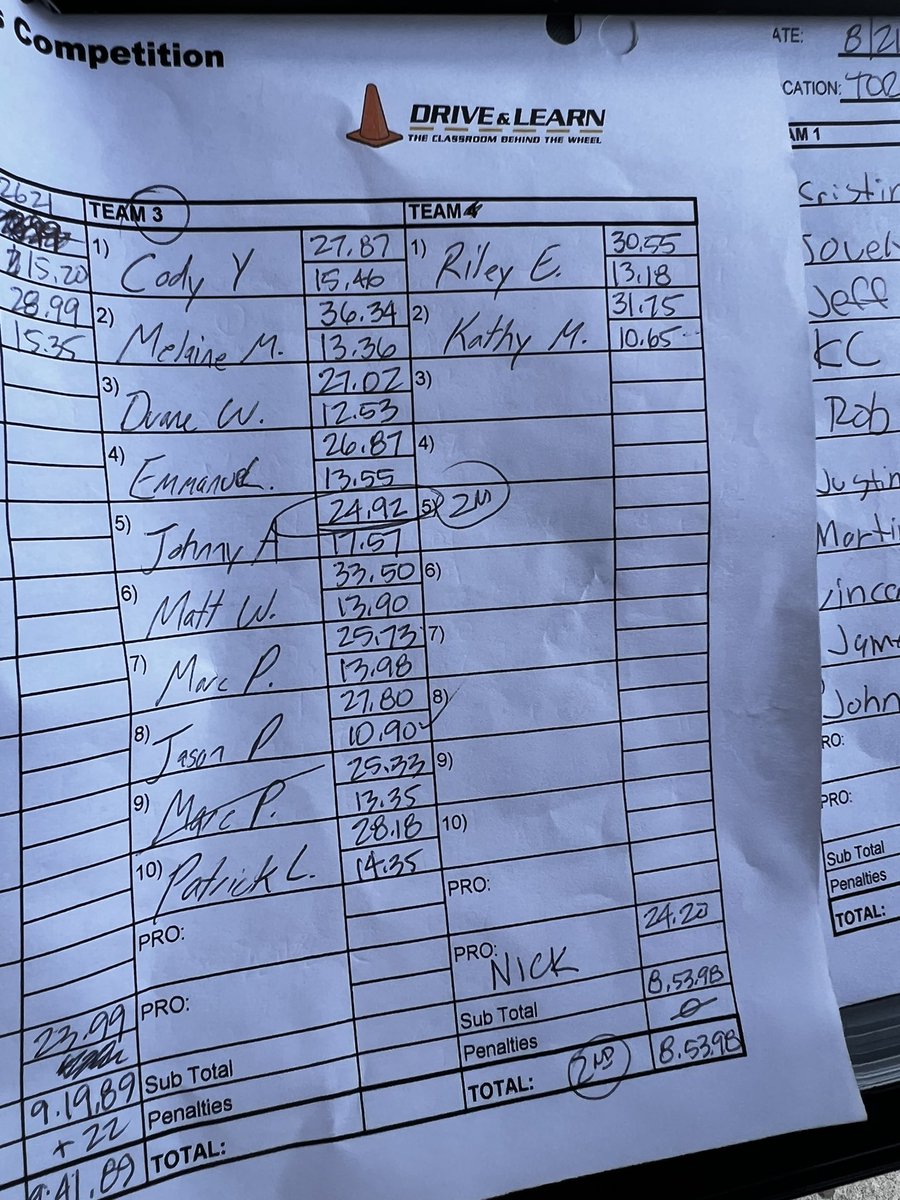 s Competition
DRIVE & LEARN
THE CLASSROOM BEHIND THE WHEEL
ATE: 8/21
CATION: TOR
2621
15.20
28.99
15.35
23.99
9.19.89
+ 22
9.41.89
TEAM 3
1) Cody Y 27.87
15.46
2) Melaine M. 36.34
13.36
3) Duane W. 27.02
12.53
4) Emmanuel. 26.87
13.55
5) Johnny A 24.92
17.57
6) Matt W. 33.50
13.90
7) Marc P. 25.73
13.98
8) Jason P 27.80
10.90
9) Marc P. 25.33
13.35
10) Patrick L. 28.18
14.35
PRO:
PRO:
Sub Total
Penalties
TOTAL:
TEAM 4
1) Riley E. 30.55
13.18
2) Kathy M. 31.75
10.65
3)
4)
5) 2ND
6)
7)
8)
9)
10)
PRO: 24.20
PRO: NICK
Sub Total 8.53.98
Penalties 0
TOTAL: 2ND 8.53.98
AM 1
Kristin
Jovely
Jeff
KC
Rob
Justin
Martin
Vince
Jame
John
RO:
PRO:
Sub Total
Penalties
TOTAL: